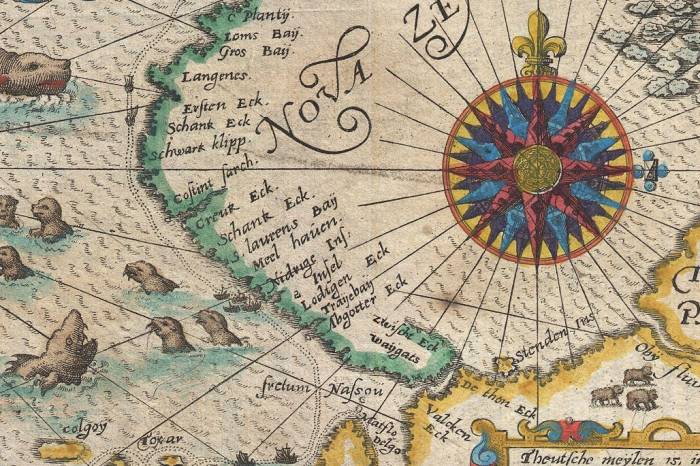 C Plantij.
Loms Baij.
Gros Baij.
Langenes.
Ersten Eck.
Schank Eck
Schwark klipp.
Costint sarch.
Creutz Eck.
Schank Eck.
S laurens Baij
Meel hauen.
Nidrige Ins
2 Insel
Lodigen Eck
Traijebaij
Abgotter Eck
Zwische Eck
waijgats
NOVA
ZE
fretum Nassou
colgoij
Toxar
stenden Ins
De thon Eck
Valcken
Eck
Obij flu
Theutsche meijlen 15. i